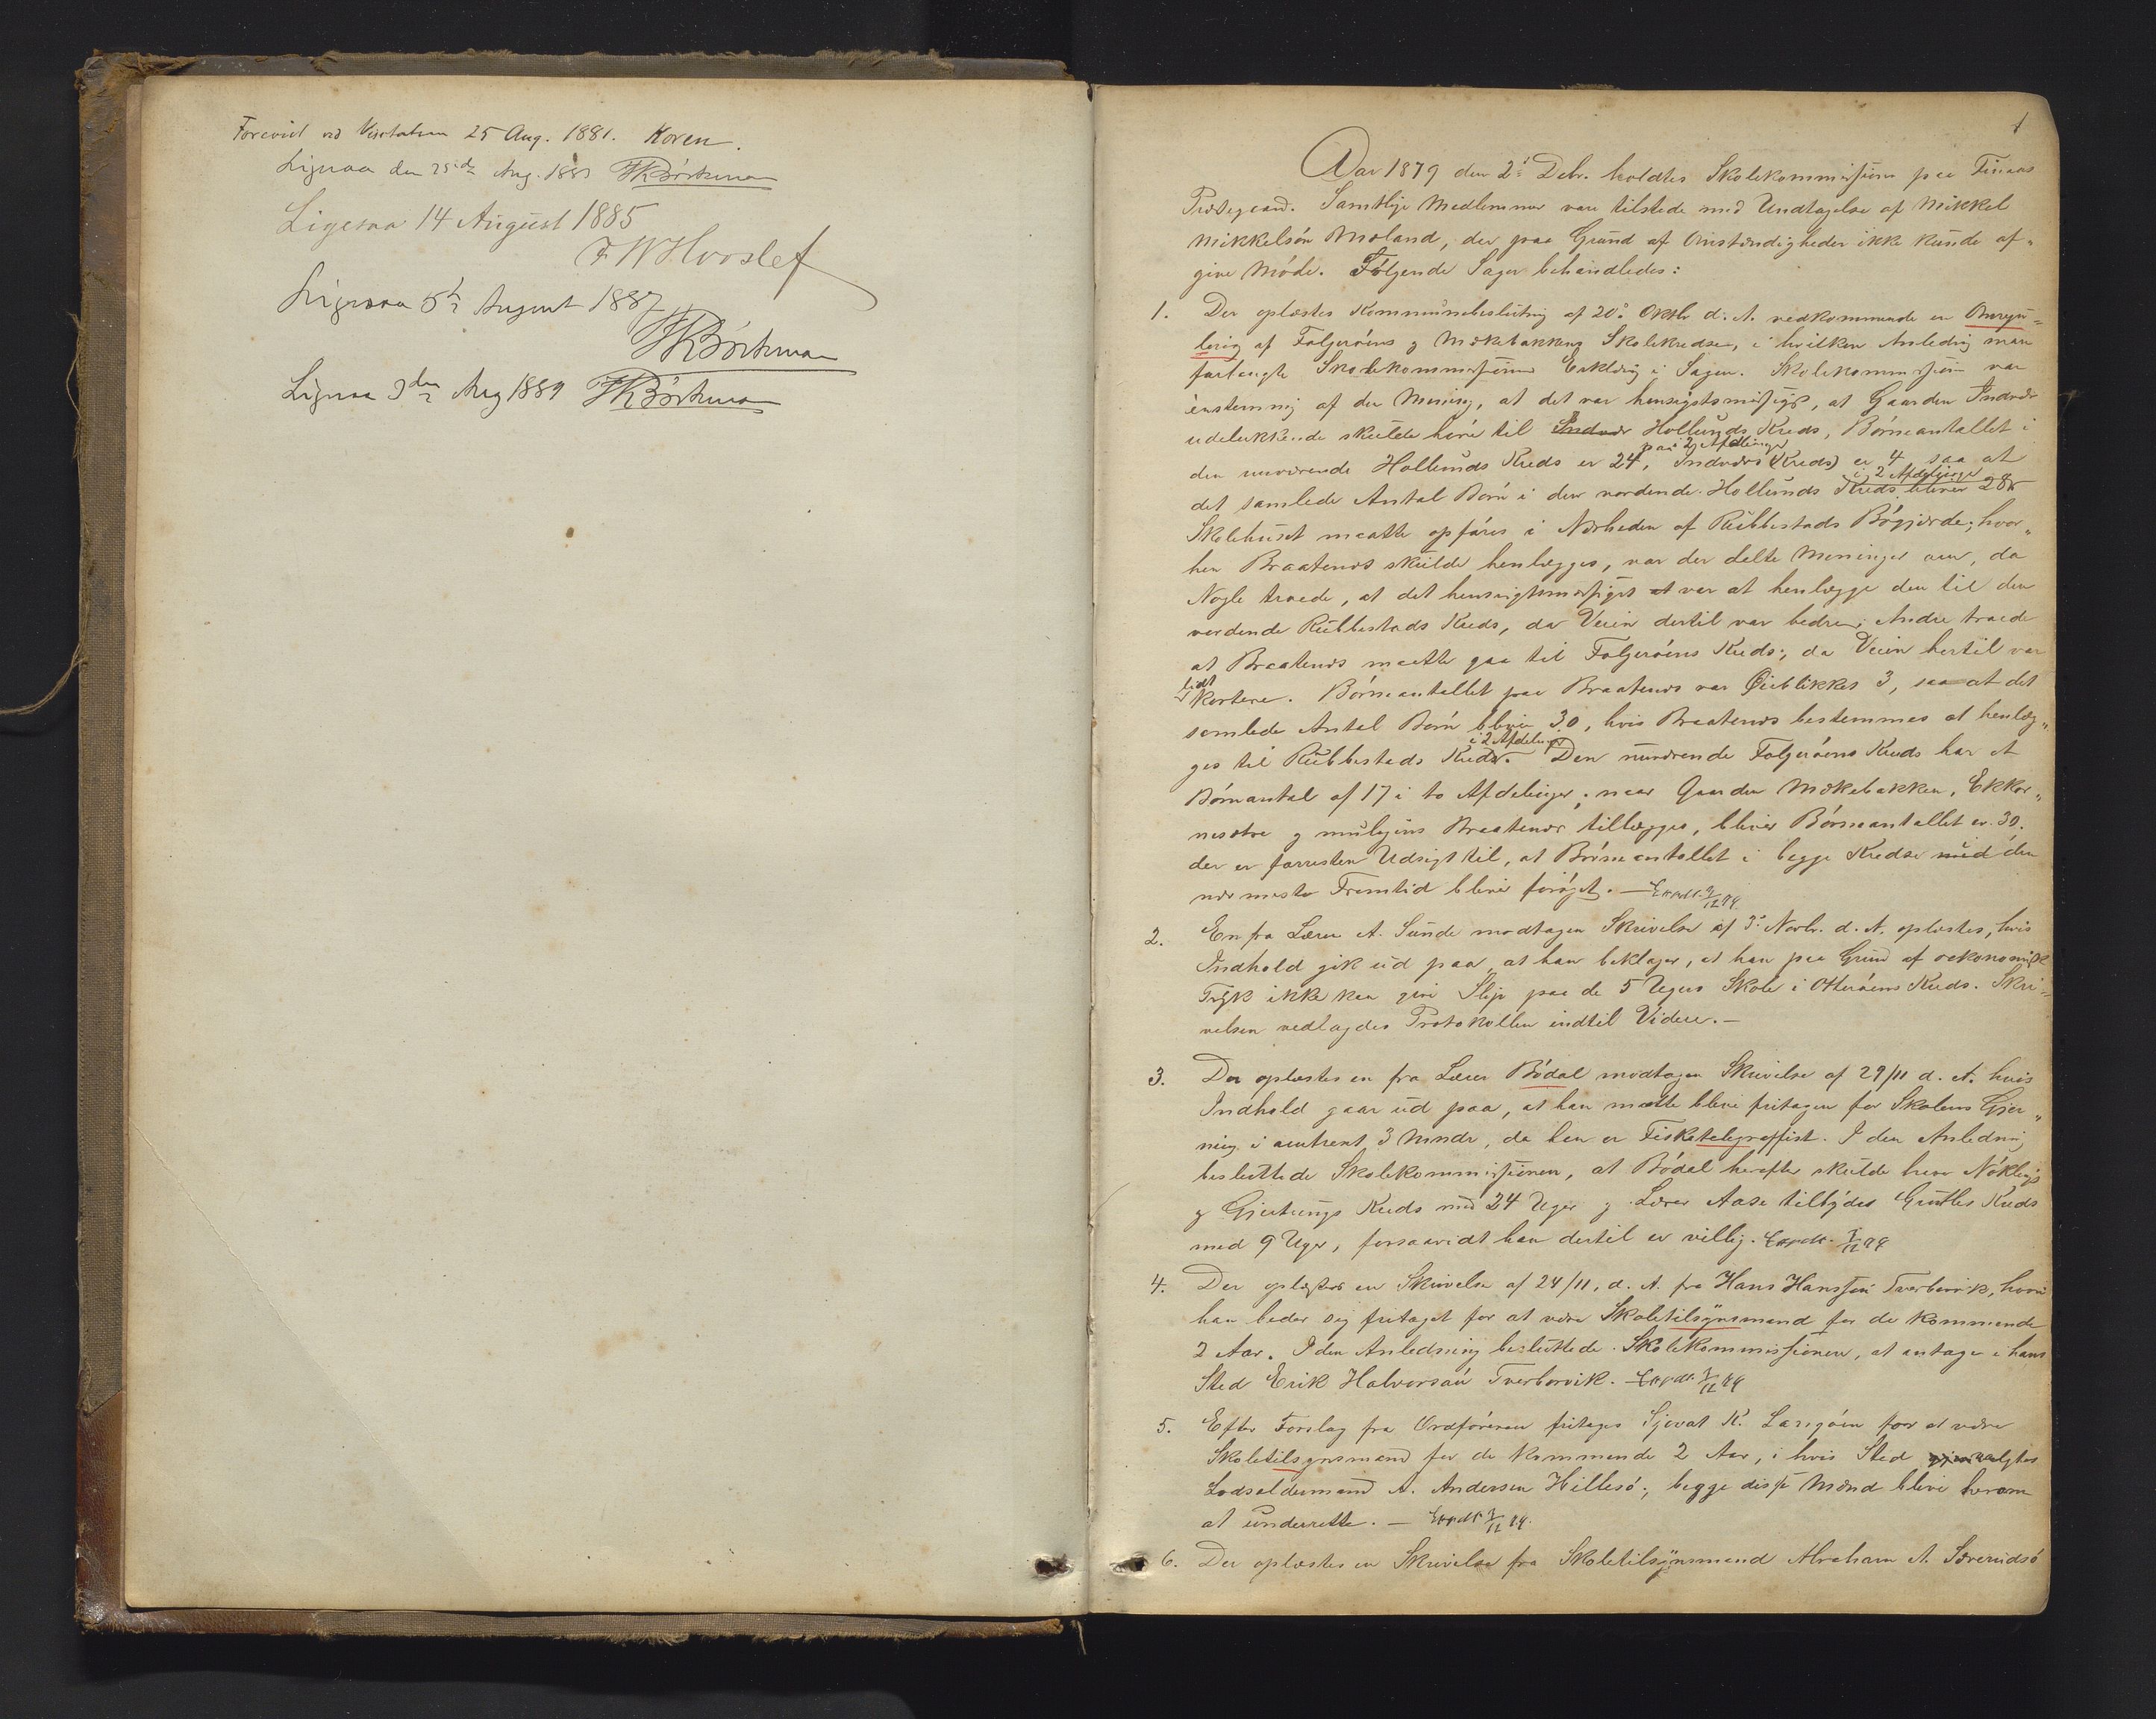 Forevist ved Visitatsen 25 Aug. 1881. Koren.
Ligesaa den 25de Aug. 1883
Ligesaa 14 August 1885
F W Hvoslef
Ligesaa 5te August 1887
Ligesaa 3die Aug 1889
1
Aar 1879 den 2' Debr. holdtes Skolekommission paa Finaas
Prestegaard. Samtlige Medlemmer vare tilstede med Undtagelse af Mikkel
Mikkelsön Moland, der paa Grund af Omstændigheder ikke kunde af„
give Möde. Fölgende Sager behandledes:
1. Der oplæstes Kommunebeslutning af 20' Oktbr d. A. vedkommende en Omregu=
lering af Folgeröens og Mækebakkens Skolekredse, i hvilken Anledning man
forlangte Skolekommissionens Erklæring i Sagen. Skolekommissionen var
enstemmig af den Mening, at det var hensigtsmæssigst, at Gaarden Indvær
udelukkende skulde höre til Indvær Hollunds Kreds, Börneantallet i
den nuværende Hollunds Kreds er 24, paa 2 Afdelinger Indværs (Kreds) er 4, saa at
det samlede Antal Börn i den vordende Hollunds Kreds bliver 28 i 2 Afdelinger
Skolehuset maatte opföres i Nærheden af Rubbestads Bögjærde; hvor„
hen Braatenes skulde henlægges, var der delte Meninger om, da
Nogle troede, at det hensigtsmæssigst at var at henlægge den til den
vordende Rubbestads Kreds, da Veien dertil var bedre; Andre troede
at Braatenes maatte gaa til Folgeröens Kreds; da Veien hertil var
lidt kortere. Börneantallet paa Braatenes var Öieblikket 3, saa at det
samlede Antal Börn bliver 30, hvis Braatenes bestemmes at henlæg„
ges til Rubbestads Kreds. i 2 Afdelinger Den nuværende Folgeröens Kreds har et
Börneantal af 17 i to Afdelinger; naar Gaarden Mækebakken, Ekkor„
nesætre og muligens Braatenes tillægges, bliver Börneantallet er 30.
der er forresten Udsigt til, at Börneantallet i begge Kredse med den
nærmeste Fremtid bliver foröget. — Expdt. 9/12 79
2. En fra Lærer A. Sunde modtagen Skrivelse af 3' Novbr. d. A. oplæstes, hvis
Indhold gik ud paa at han beklager, at han paa Grund af oekonomisk
Tryk ikke kan give Slip paa de 5 Ugers Skole i Otteröens Kreds. Skri=
velsen vedlagdes Protokollen indtil Videre.—
3. Der oplæstes en fra Lærer Bödal modtagen Skrivelse af 29/11 d. A. hvis
Indhold gaar ud paa, at han maatte blive fritagen for Skolens Gjer„
ning i omtrent 3 Mndr, da han er Fisketelegraffist. I den Anledning
besluttede Skolekommissionen, at Bödal herefter skulde have Nöklings
og Gjertrungs Kreds med 24 Uger og Lærer Aase tilbydes Kreds
med 9 Uger, forsaavidt han dertil er villig. Expdt. 9/12 79
4. Der oplæstes en Skrivelse af 24/11, d. A. fra Hans Hanssön Tverborvik, hvori
han beder sig fritaget for at være Skoletilsynsmand for de kommende
2 Aar. I den Anledning besluttede Skolekommissionen, at antage i hans
Sted Erik Halvorsön Tverborvik. — Expdt. 9/12 79
5. Efter Forslag fra Ordföreren fritages Sjovat K. for at være
Skoletilsynsmand for de kommende 2 Aar, i hvis Sted valgtes
Lodsoldermand A. Andersen Hillesö; begge disse Mænd blive herom
at underrette. — Expdt. 9/12 79.
6. Der oplæstes en Skrivelse fra Skoletilsynsmand Abraham A.